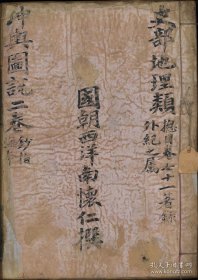 史部地理類
總目卷七十一著錄
外紀之屬
國朝西洋南懷仁撰
坤輿圖說二卷